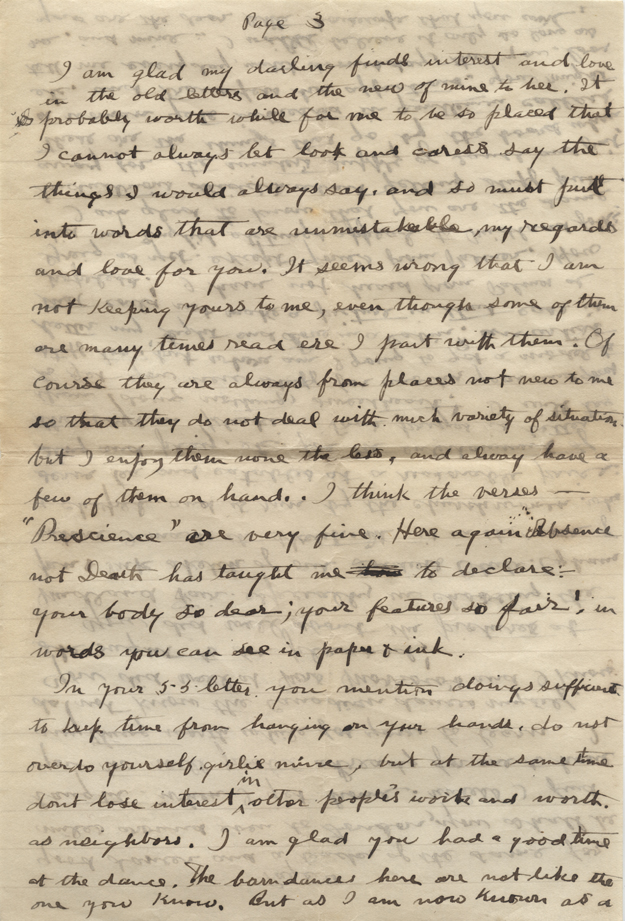 Page 3
I am glad my darling finds interest and love
in the old letters and the new of mine to her. It
is probably worth while for me to be so placed that
I cannot always let look and caress say the
things I would always say. and so must put
into words that are unmistakable, my regards
and love for you. It seems wrong that I am
not keeping yours to me, even though some of them
are many times read ere I part with them. Of
course they are always from places not new to me
so that they do not deal with much variety of situation.
but I enjoy them none the less, and alway have a
few of them on hand. . I think the verses —
"Prescience" are very fine. Here again Absence
not Death has taught me to declare:-
your body so dear; your features so fair! in
words you can see in paper & ink.
In your 5-5 letter you mention doings sufficient
to keep time from hanging on your hands. do not
overdo yourself girlie mine, but at the same time
dont lose interest in other people's work and worth.
as neighbors. I am glad you had a good time
at the dance. The barndances here are not like the
one you know. But as I am now known as a